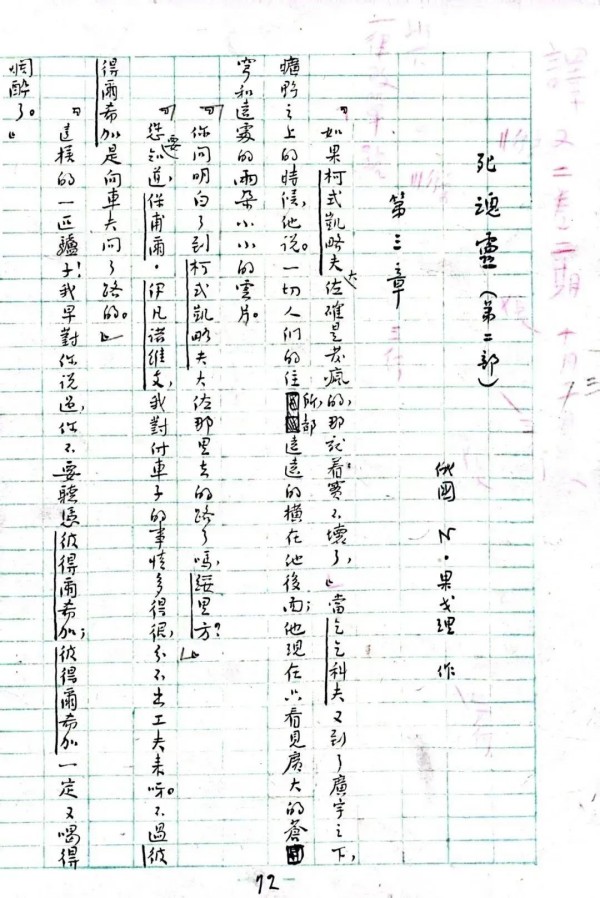 譯文二卷二期 十月
死魂靈(第二部)
俄國 N·果戈理 作
第三章
『如果柯式凱略夫大佐確是發瘋的,那就着實不壞了,』當乞乞科夫又到了廣宇之下,
曠野之上的時候,他說。一切人們的住所,都遠遠的橫在他後面;他現在只看見廣大的蒼
穹和遠處的兩朵小小的雲片。
『你問明白了到柯式凱略夫大佐那里去的路了嗎,綏里方?』
『您要知道,保甫爾·伊凡諾維支,我對付車子的事情多得很,分不出工夫來呀。不過彼
得爾希加是向車夫問了路的。』
『這樣的一匹驢子!我早對你說過,你不要聽憑彼得爾希加;彼得爾希加一定又喝得
爛醉了。』
72